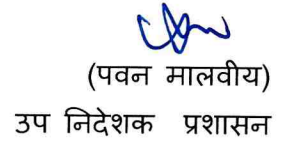 (पवन मालवीय)
उप निदेशक प्रशासन